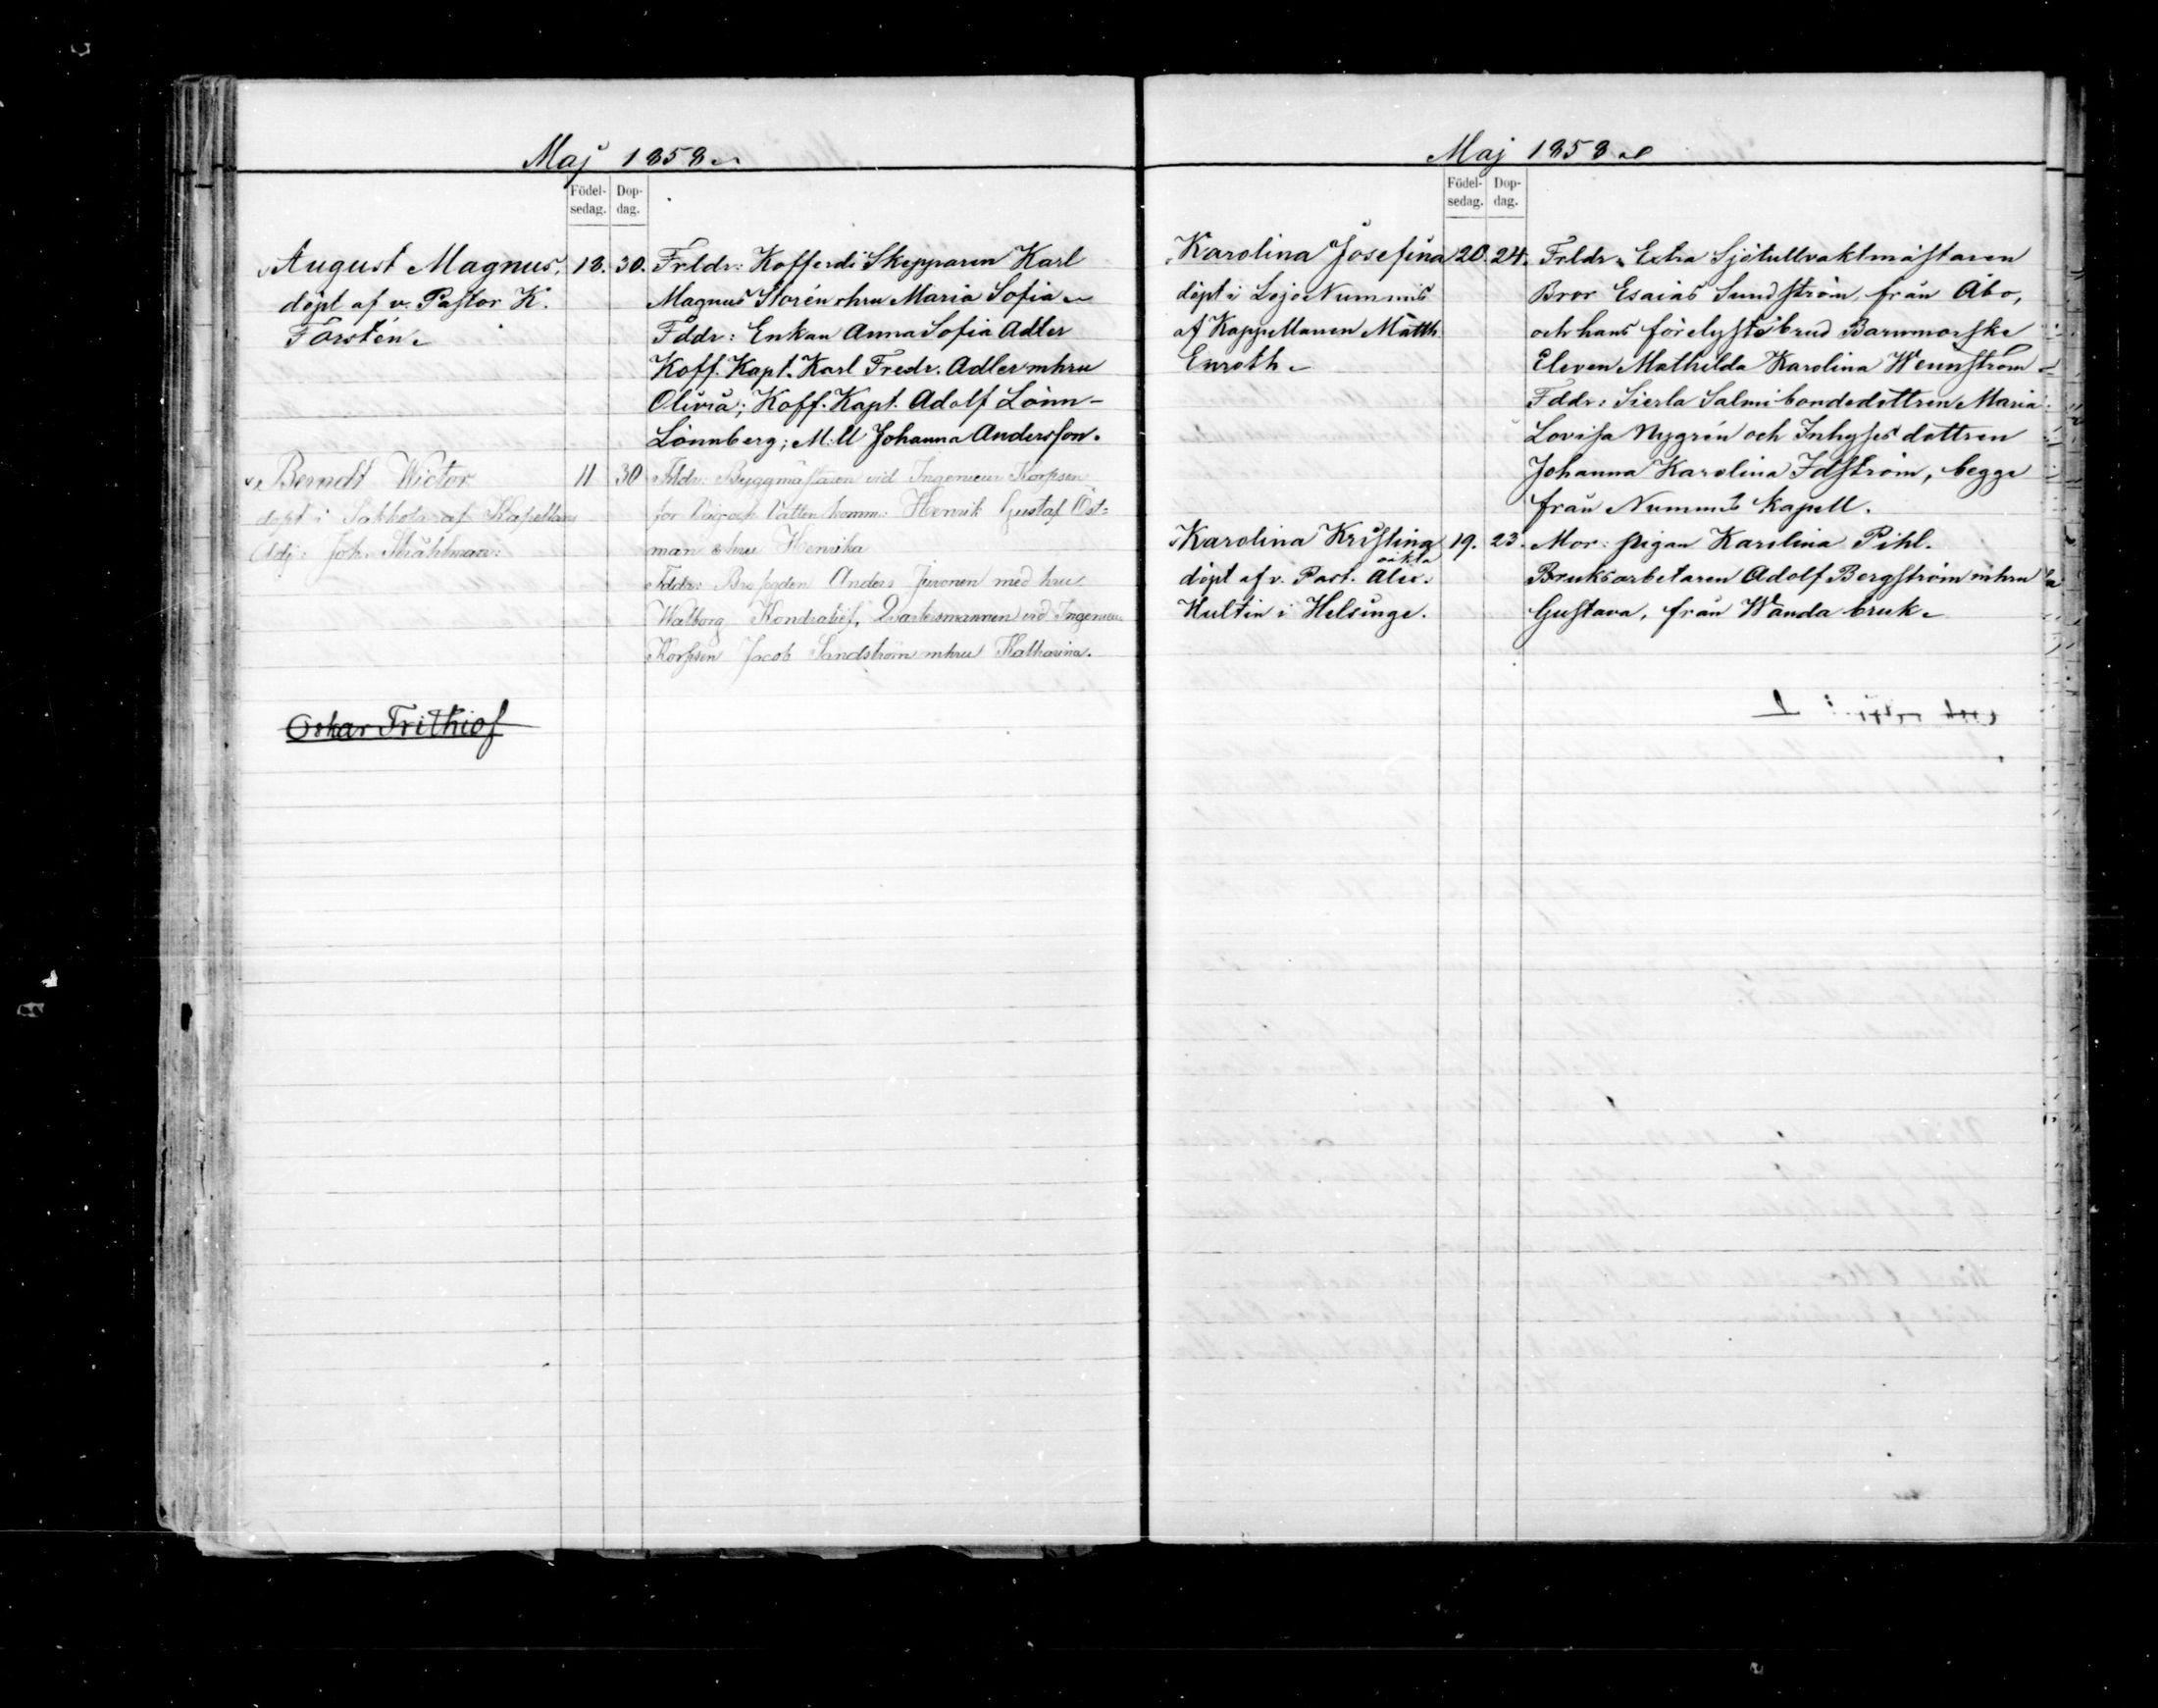 Maj 1858
Födel-
sedag.
Dop-
dag.
August Magnus. 18. 30. Frldr: Kofferdi Skepparen Karl
döpt af v. Pastor K. Magnus Storén ohru Maria Sofia
Forstén Fddr: Enkan Anna Sofia Adler
Koff. Kapt. Karl Fredr. Adler mhru
Olivia; Koff. Kapt. Adolf Lönn-
Lönnberg; M:ll Johanna Andersson.
Berndt Wictor 11 30 Frldr: Byggmästaren vid Ingenieur Korpsen
döpt i Sakkola af Kapellans för Väg och Vatten komm: Henrik Gustaf Öst-
Adj: Joh. Ståhlman: man o hru Henrika
Fddr: Brofogden Anders Juvonen med hru
Walborg Kondratief, Qvartersmannen vid Ingenieur
Korpsen Jacob Sandström mhru Katharina.
Oskar Frithiof
Maj 1858
Födel-
sedag.
Dop-
dag.
Karolina Josefina 20. 24. Frldr: Extra Sjötullvaktmästaren
döpt i Lojo Nummis Bror Esaias Sundström, från Åbo,
af Kappellanen Matth. och hans förelysta brud Barnmorske
Euroth Eleven Mathilda Karolina Wennström
Fddr: Sierla Salmi bondedottren Maria
Lovisa Nygrén och Inhyses dottren
Johanna Karolina Idström, begge
från Nummis kapell.
Karolina Kristina 19. 23. Mor: pigan Karolina Pihl.
oäkta
döpt af v. Past. Alex. Bruksarbetaren Adolf Bergström mhru
Hultin i Helsinge. Gustava, från Wanda bruk